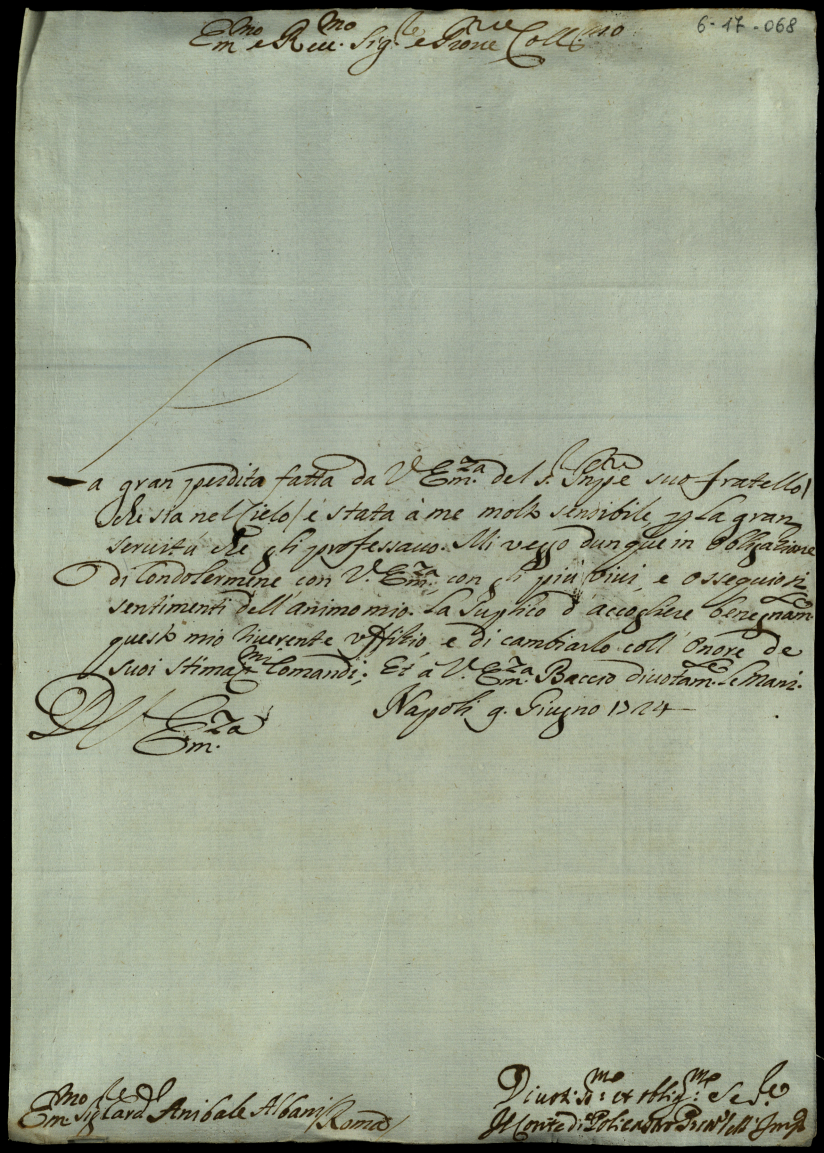 6-17-068
Em.mo e Reu.mo Sig.re e Prone Coll.mo
La gran perdita fatta da V. Em.za del S.r Pnpe suo fratello /
che sta nel Cielo / è stata à me molto sensibile p la gran
seruitù che gli professauo. Mi veggo dunque in obligazione
di Condolermene con V. Em.za con gli più viui, e ossequiosi
sentimenti dell'animo mio. La Suplico d'accogliere benegnam.
questo mio riuerente vffitio, e di cambiarlo coll'onore de
suoi stimat.mi Comandi; Et à V. Em.za Baccio diuotam. le Mani.
Napoli 9. Giugno 1724
D V. Em.za
Diuotis.mo et oblig.mo Se.re
Em.mo Sig.re Card.l Anibale Albani / Roma /
Il Conte di Policastro